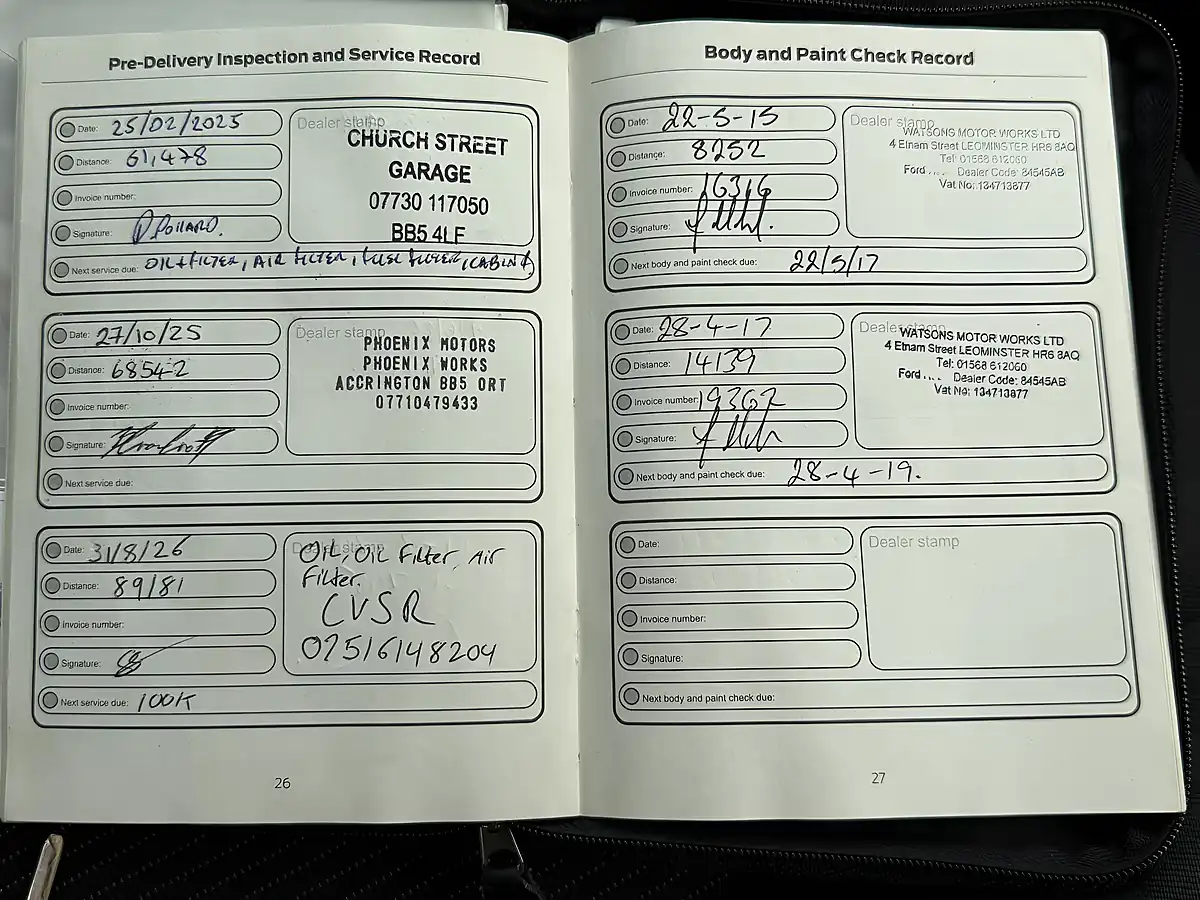 Pre-Delivery Inspection and Service Record
Date: 25/02/2025
Distance: 61,478
Invoice number:
Signature: P.POLLARD.
Dealer stamp
CHURCH STREET
GARAGE
07730 117050
BB5 4LF
Next service due: OIL+FILTER, AIR FILTER, FUEL FILTER, CABIN F
Date: 27/10/25
Distance: 68542
Invoice number:
Signature:
Dealer stamp
PHOENIX MOTORS
PHOENIX WORKS
ACCRINGTON BB5 0RT
07710479433
Next service due:
Date: 31/8/26
Distance: 89181
Invoice number:
Signature:
Dealer stamp
OIL, OIL Filter, Air
Filter.
CVSR
02516148204
Next service due: 100K
26
Body and Paint Check Record
Date: 22-5-15
Distance: 8252
Invoice number: 16316
Signature:
Dealer stamp
WATSONS MOTOR WORKS LTD
4 Etnam Street LEOMINSTER HR6 8AQ
Tel: 01568 612060
Ford .... Dealer Code: 84545AB
Vat No: 134713877
Next body and paint check due: 22/5/17
Date: 28-4-17
Distance: 14139
Invoice number: 19367
Signature:
Dealer stamp
WATSONS MOTOR WORKS LTD
4 Etnam Street LEOMINSTER HR6 8AQ
Tel: 01568 612060
Ford .... Dealer Code: 84545AB
Vat No: 134713877
Next body and paint check due: 28-4-19.
Date:
Distance:
Invoice number:
Signature:
Dealer stamp
Next body and paint check due:
27